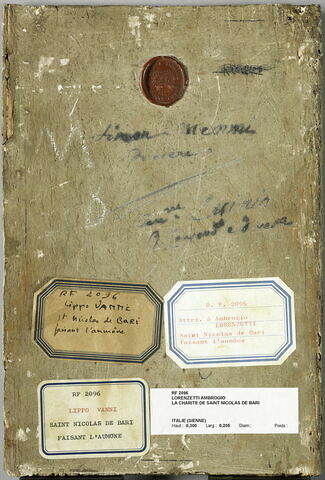 Simon Memmi
RF 2096
Lippo VANNI
St Nicolas de BARI
faisant l'aumône
R. F. 2096
Attri. à Ambrogio
LORENZETTI
Saint Nicolas de Bari
faisant l'aumône
RF 2096
LIPPO VANNI
SAINT NICOLAS DE BARI
FAISANT L'AUMÔNE
RF 2096
LORENZETTI AMBROGIO
LA CHARITE DE SAINT NICOLAS DE BARI
ITALIE (SIENNE)
Haut : 0,300 Larg : 0,205 Diam : Poids :